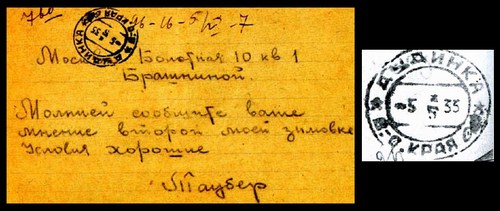 760 96-16-5/VI-7
Москва Болотная 10 кв 1
Брашниной.
Молнией сообщите ваше
мнение второй моей зимовке
Условия хорошие
Таубер
ДУДИНКА
-5 35
КРАЯ